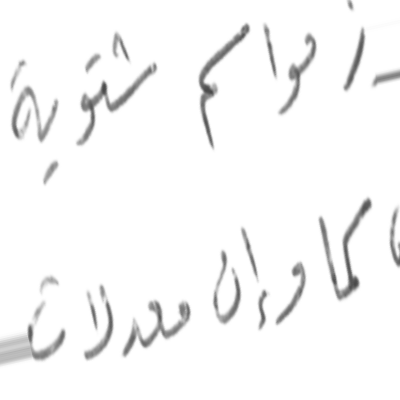 ز مواسم شتوية
كما وإن معدلات